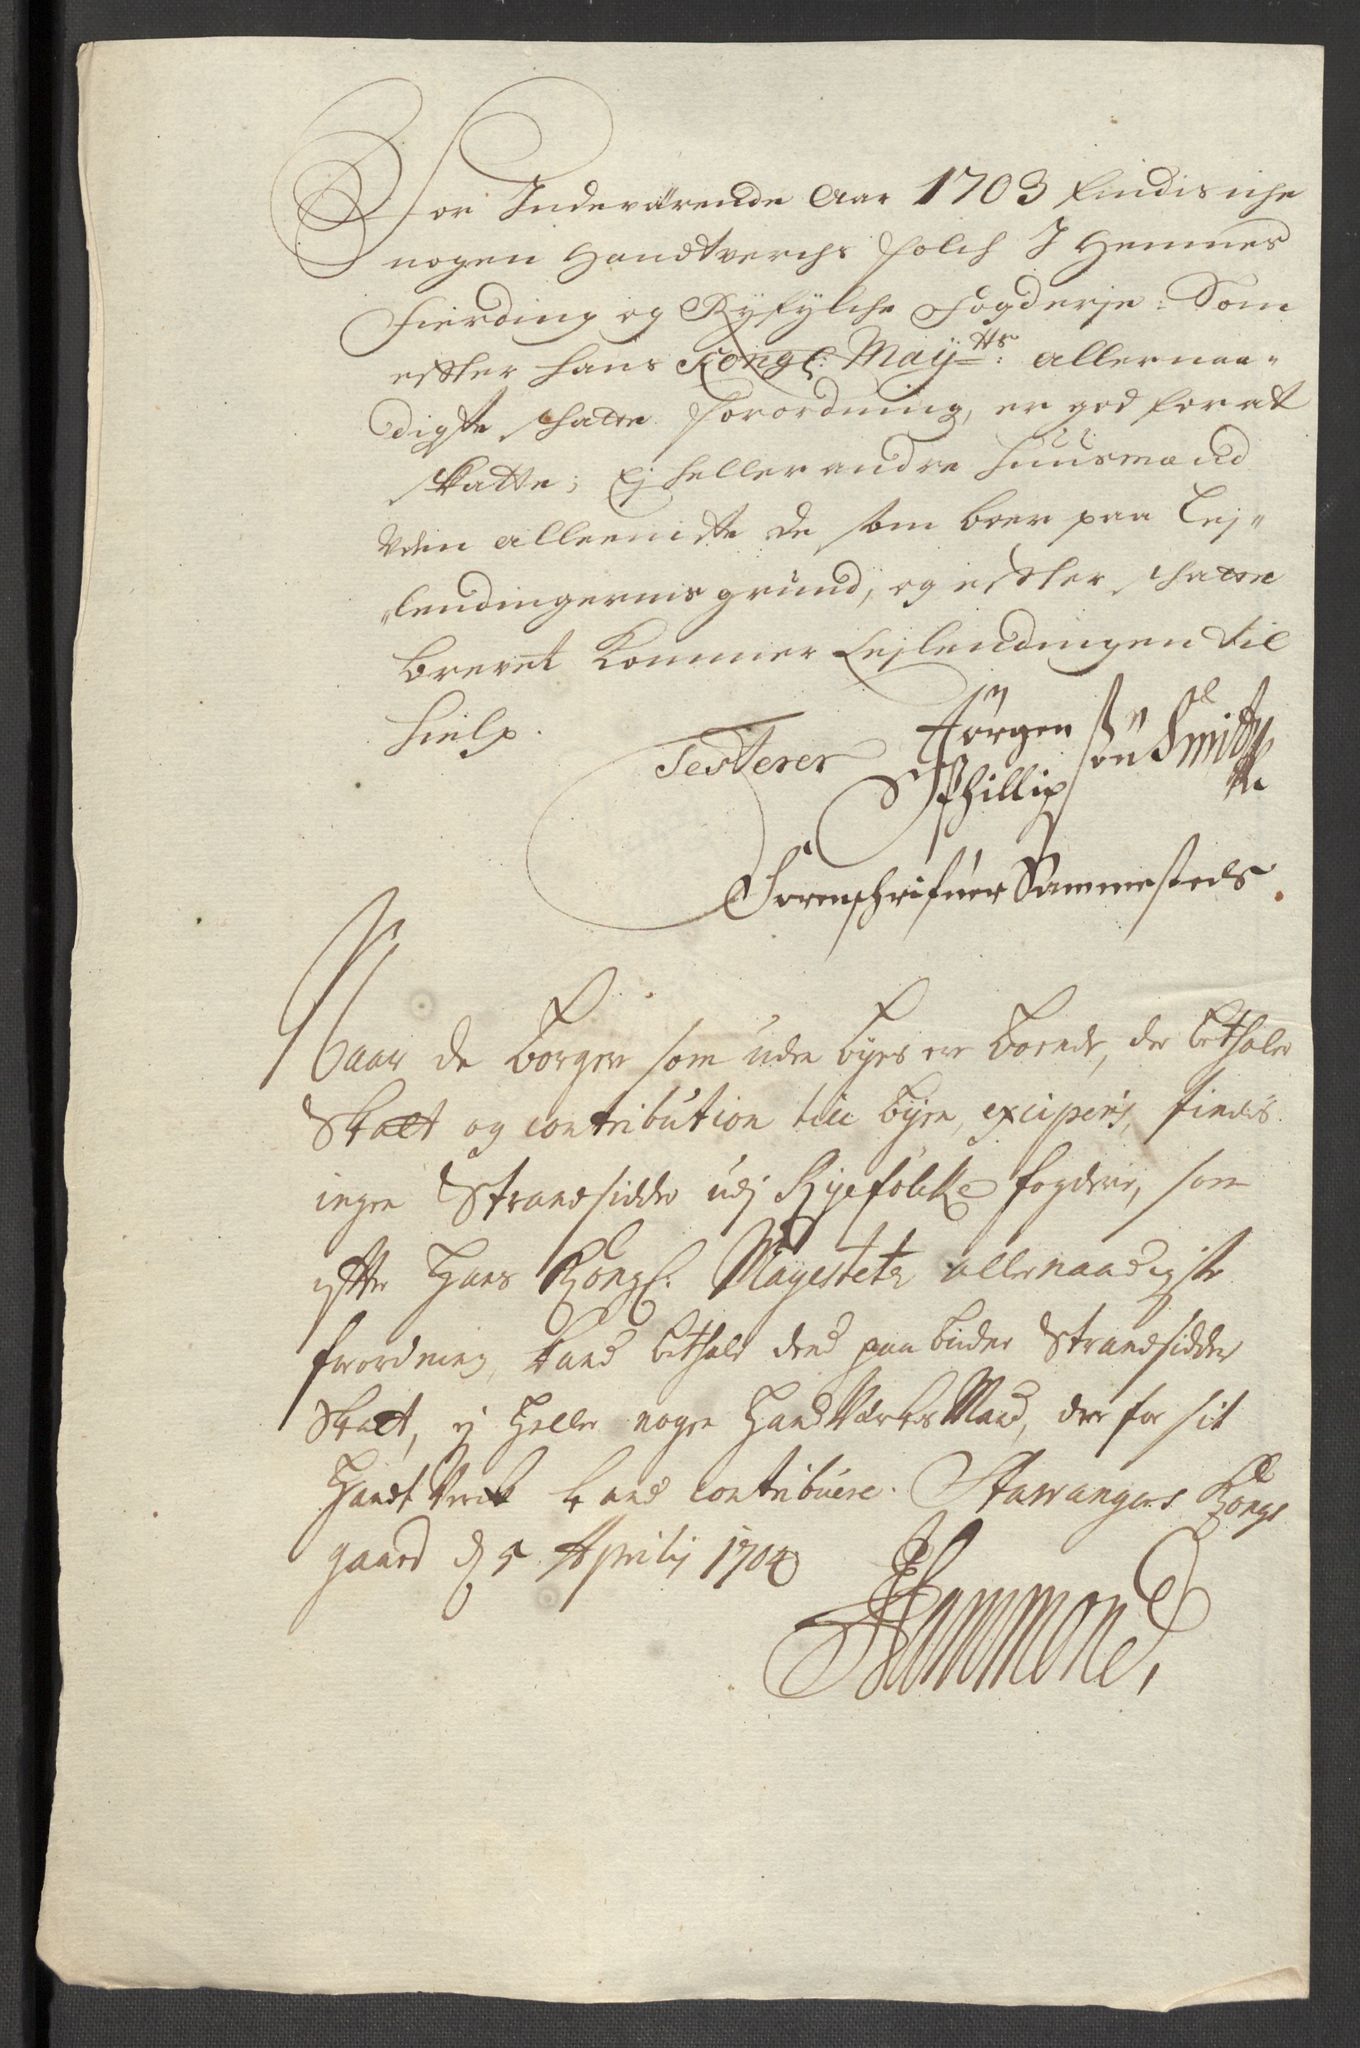 For Indeværende Aar 1703 findis iche
nogen Handtverchs folch I Hemnes
fierding og Ryfylche fogderje: Som
effter hans Kongl: Maÿtts: allernaa-
digste schatte forordning, er god for at
skatte; Ej heller andre huusmænd
Uden alleeniste de som boer paa Lej-
lendingernis grund, og effter schatte
brevet kommer Lejlendingen til
hielp.
Testerer Jörgen
Phillip sön Smitt
Sorenschrifuer Sammesteds
Naar de borgere som uden byes ere boende, der betaler
Skatt og contribution till byen, exciperis, findis
ingen Strandsidder udj Ryefölcke fogderie, som
effter Hans Kongl: Mayestetz allernaadigste
forordning, kand betale dend paabudne Strandsidder
Skatt, ej heller nogen HandVærks Mand, der for sit
Handt Verck kand contribuere. Stavangers Kongs
gaard d 5 Aprilij 1704
Hammond,